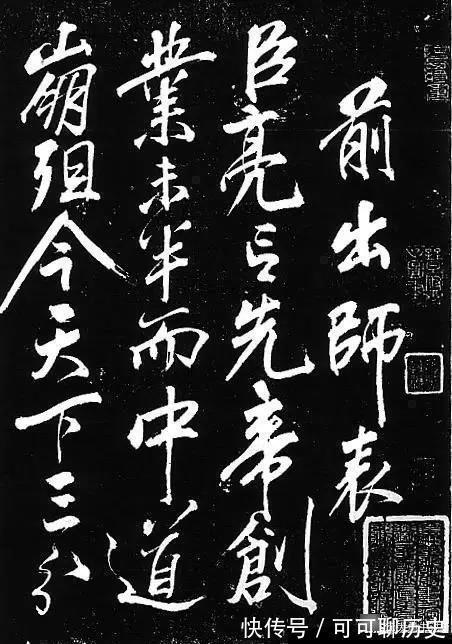 前出師表
臣亮言先帝創
業未半而中道
崩殂今天下三分
快传号/可可聊历史